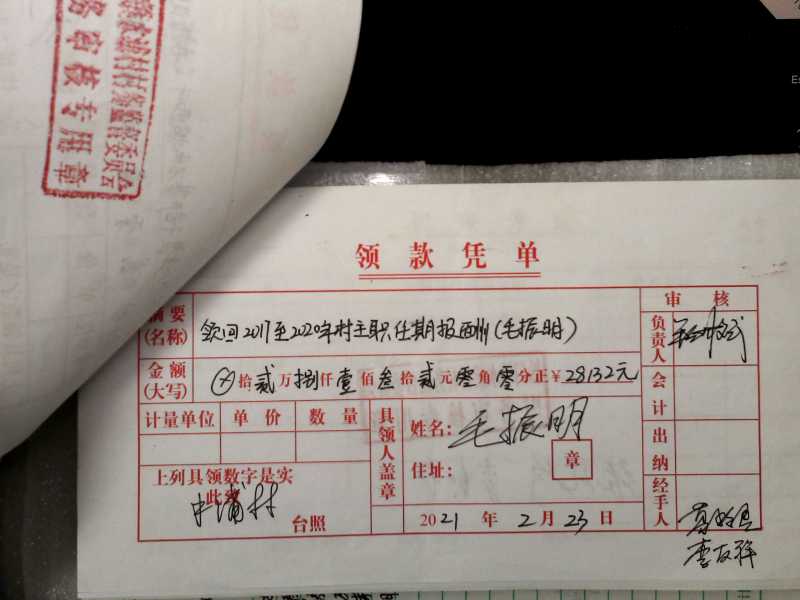 村务监督委员会
务审核专用章
领款凭单
摘要
(名称)
领回2017至2020年村主职任期报酬(毛振明)
审核
负责人
金额
(大写)
⊗拾贰万捌仟壹佰叁拾贰元零角零分正¥28132元
会计
计量单位 单价 数量
具领人盖章
姓名: 毛振明
住址:
章
出纳
上列具领数字是实
此致
中浦村
台照
2021年2月23日
经手人
李友祥